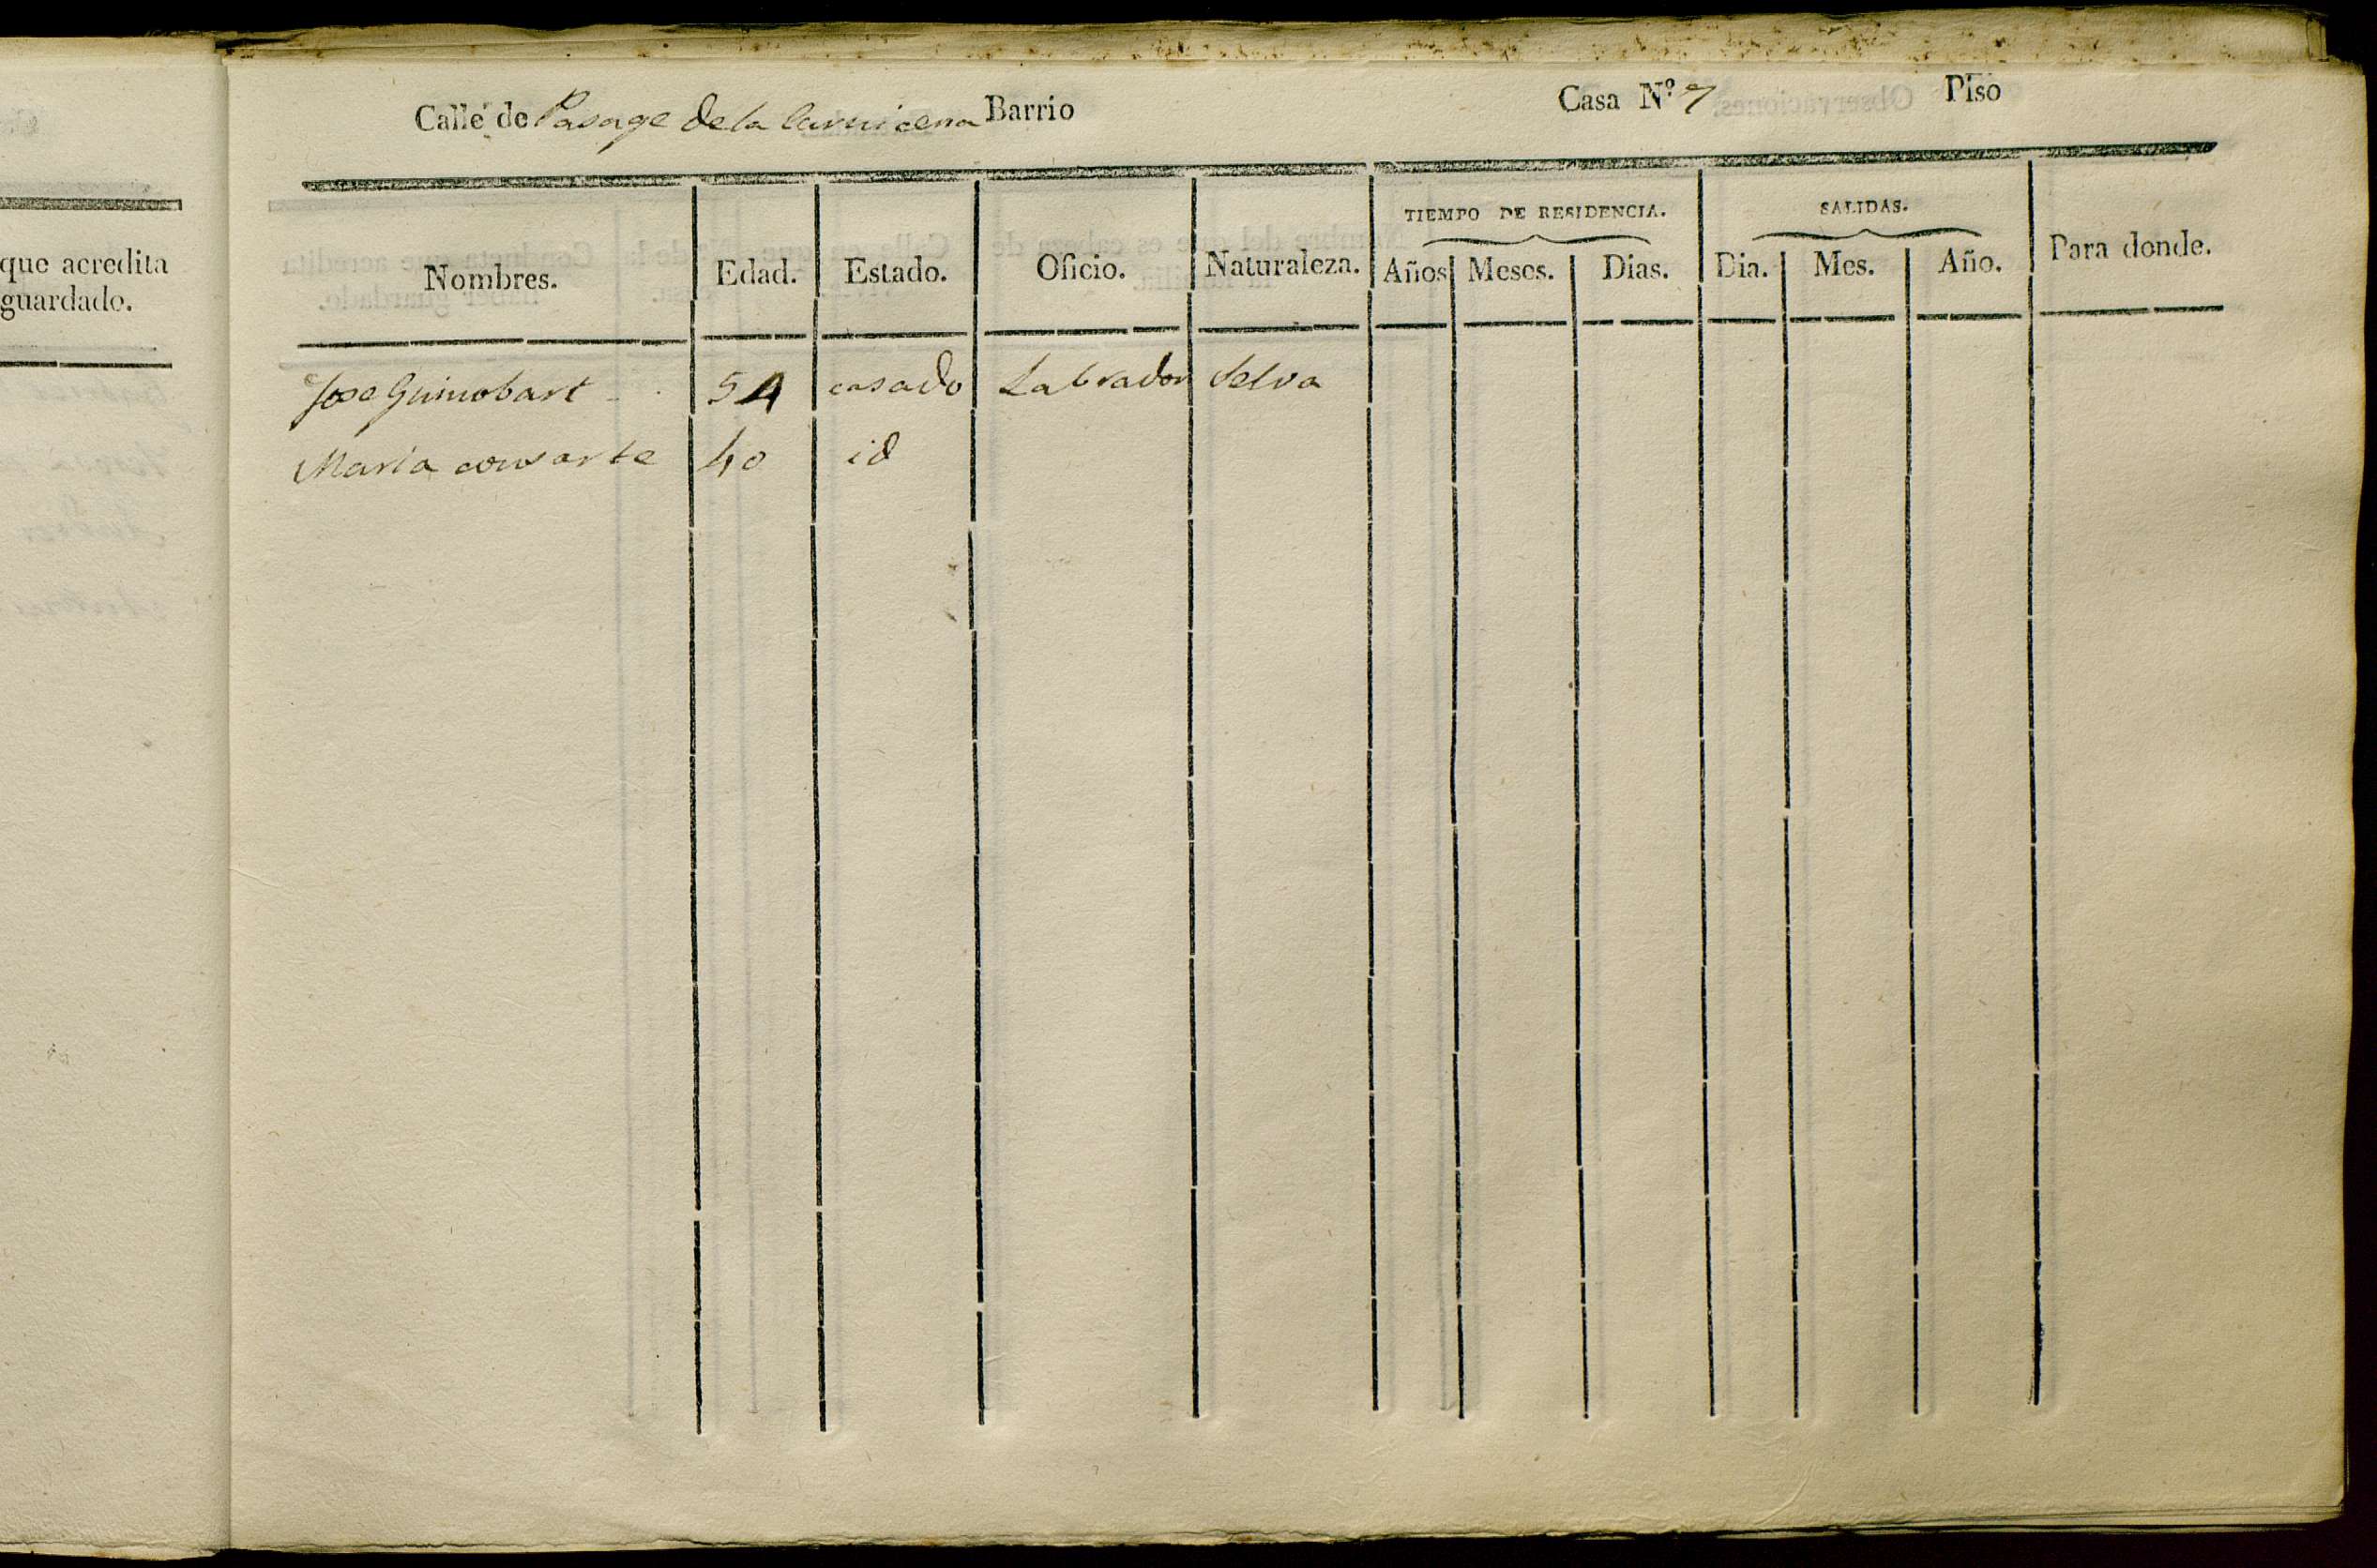 Calle de Pasage de la Carniceria Barrio Casa N.º 7 Piso
que acredita
guardado.
TIEMPO DE RESIDENCIA. SALIDAS.
Nombres. Edad. Estado. Oficio. Naturaleza. Años Meses. Dias. Dia. Mes. Año. Para donde.
Jose Guinobart 54 casado Labrador Selva
Maria consorte 40 id